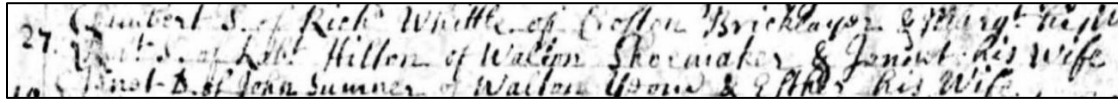 Cuthbert S. of Richd Whittle of Croston Bricklayer & Margt his
27. Robt S. of Robt Hilton of Walton Shoemaker & Jennet his Wife
Jenet D. of John Sumner of Walton Yeom & Esther his Wife